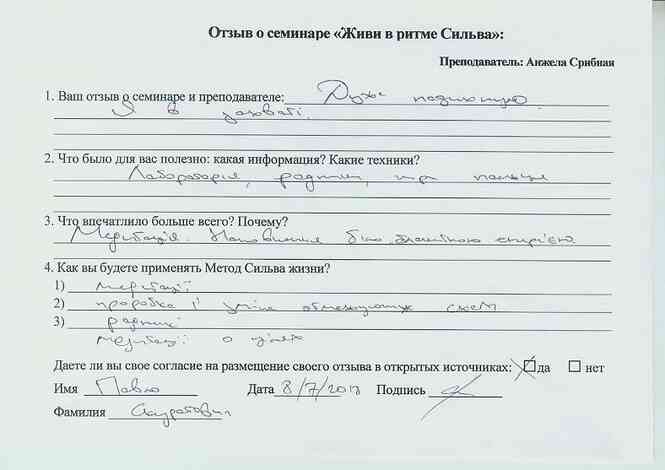 Отзыв о семинаре «Живи в ритме Сильва»:
Преподаватель: Анжела Срибная
1. Ваш отзыв о семинаре и преподавателе: Дуже
Я в захваті.
2. Что было для вас полезно: какая информация? Какие техники?
Лабораторія, радники, три пальця
3. Что впечатлило больше всего? Почему?
Медитація. Наповнення біло-блакитною енергією
4. Как вы будете применять Метод Сильва жизни?
1) медитації
2) проробка і зміна обмежуючих схем
3) радник
медитації о
Даете ли вы свое согласие на размещение своего отзыва в открытых источниках: да нет
Имя Павло Дата 8/7/2017 Подпись
Фамилия